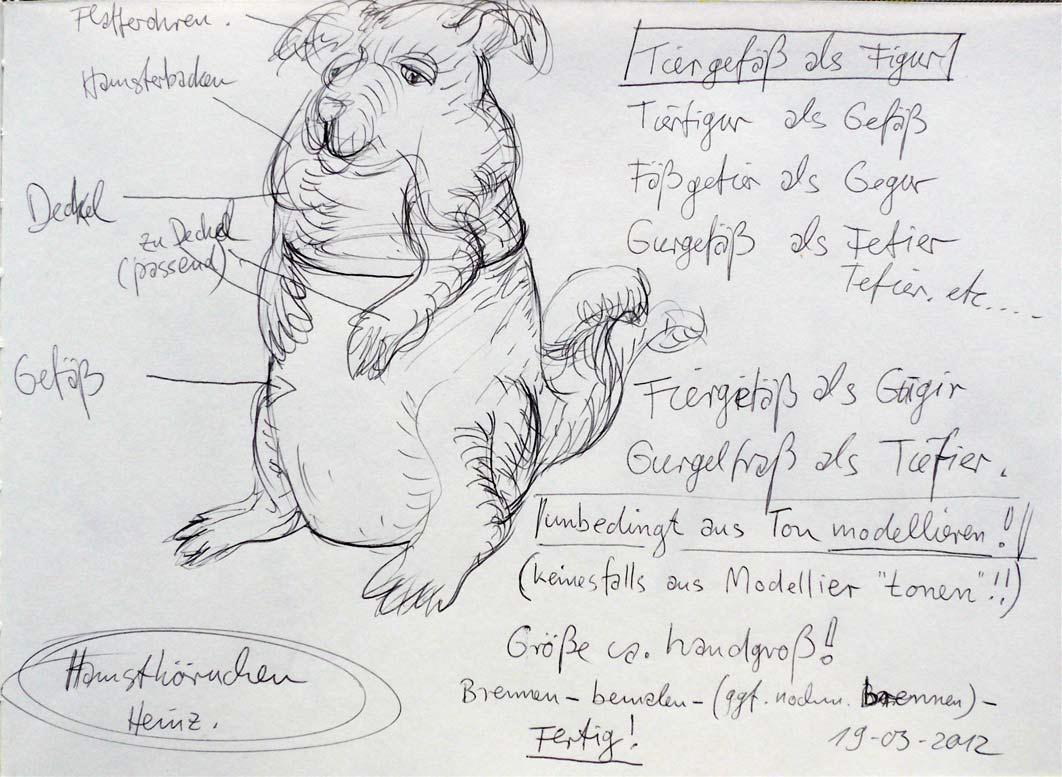 Flatterohren.
Hamsterbacken
Deckel
zu Deckel
(passend)
Gefäß
Hamsthörnchen
Heinz.
Tiergefäß als Figur
Tierfigur als Gefäß
Fäßgetier als Gegur
Gurgefäß als Fetier
Tefier, etc....
Fiergetäß als Gügir
Gurgelfraß als Tüfier.
unbedingt aus Ton modellieren!
(keinesfalls aus Modellier "tonen"!!)
Größe ca. handgroß!
Brennen – bemalen – (ggf. nochm. Brennen) –
Fertig!
19-03-2012